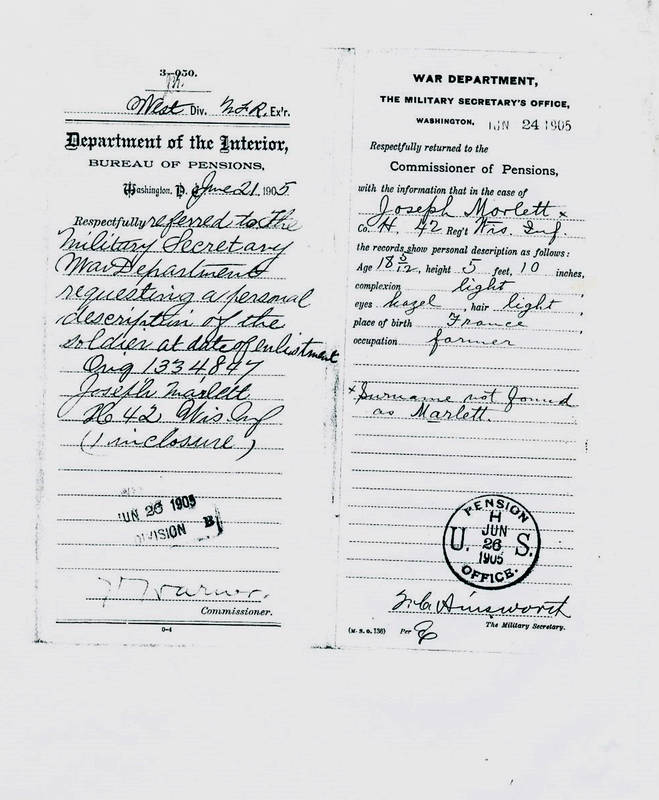 3—050.
West Div. Ex'r.
Department of the Interior,
BUREAU OF PENSIONS,
Washington, D. C., June 21, 1905
Respectfully referred to The
Military Secretary
War Department
requesting a personal
description of the
soldier at date of enlistment
Orig 1334847
Joseph Marlett
H 42 Wis Inf
(1 inclosure)
JUN 26 1905
DIVISION B
Commissioner.
0-4
WAR DEPARTMENT,
THE MILITARY SECRETARY'S OFFICE,
WASHINGTON, JUN 24 1905
Respectfully returned to the
Commissioner of Pensions,
with the information that in the case of
Joseph Morlett x
Co. H. 42 Reg't Wis. Inf
the records show personal description as follows:
Age 18 5/12, height 5 feet, 10 inches,
complexion light,
eyes hazel, hair light,
place of birth France,
occupation farmer
x Surname not found
as Marlett.
PENSION
H
JUN
U. 26 S.
1905
OFFICE.
F. C. Ainsworth
The Military Secretary.
(M. S. O. 136) Per